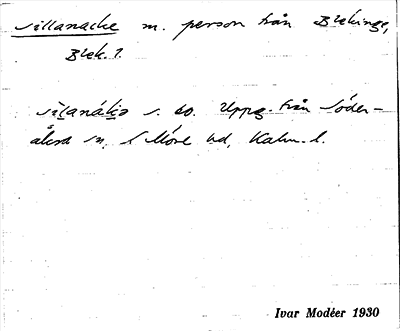 sillanacke m. person från Blekinge,
Blek. l.
s. do. Uppg. från Söder-
åkra sn, S Möre hd, Kalm. l.
Ivar Modéer 1930